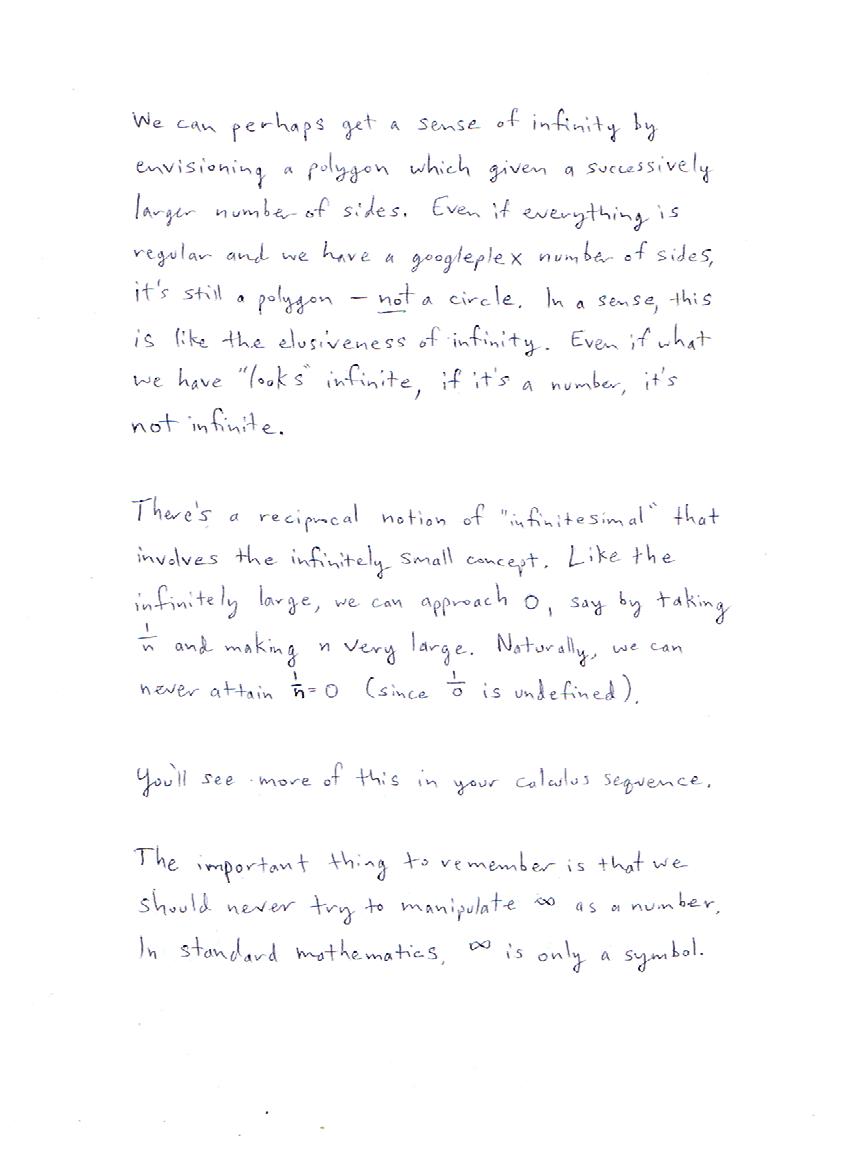 We can perhaps get a sense of infinity by
envisioning a polygon which given a successively
larger number of sides. Even if everything is
regular and we have a googleplex number of sides,
it's still a polygon – not a circle. In a sense, this
is like the elusiveness of infinity. Even if what
we have "looks" infinite, if it's a number, it's
not infinite.
There's a reciprocal notion of "infinitesimal" that
involves the infinitely small concept. Like the
infinitely large, we can approach 0, say by taking
1/n and making n very large. Naturally, we can
never attain 1/n = 0 (since 1/0 is undefined).
You'll see more of this in your calculus sequence.
The important thing to remember is that we
should never try to manipulate ∞ as a number.
In standard mathematics, ∞ is only a symbol.